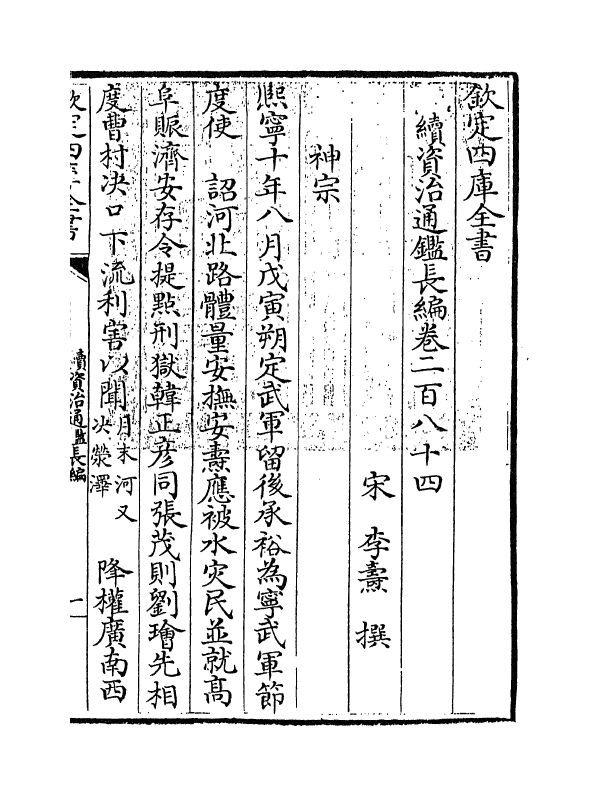 欽定四庫全書
續資治通鑑長編卷二百八十四
宋 李燾 撰
神宗
熙寧十年八月戊寅朔定武軍留後承裕為寧武軍節
度使 詔河北路體量安撫安燾應被水灾民並就髙
阜賑濟安存令提點刑獄韓正彦同張茂則劉璯先相
度曹村决口下流利害以聞月末河又决滎澤 降權廣南西
欽定四庫全書
續資治通鑑長編
一